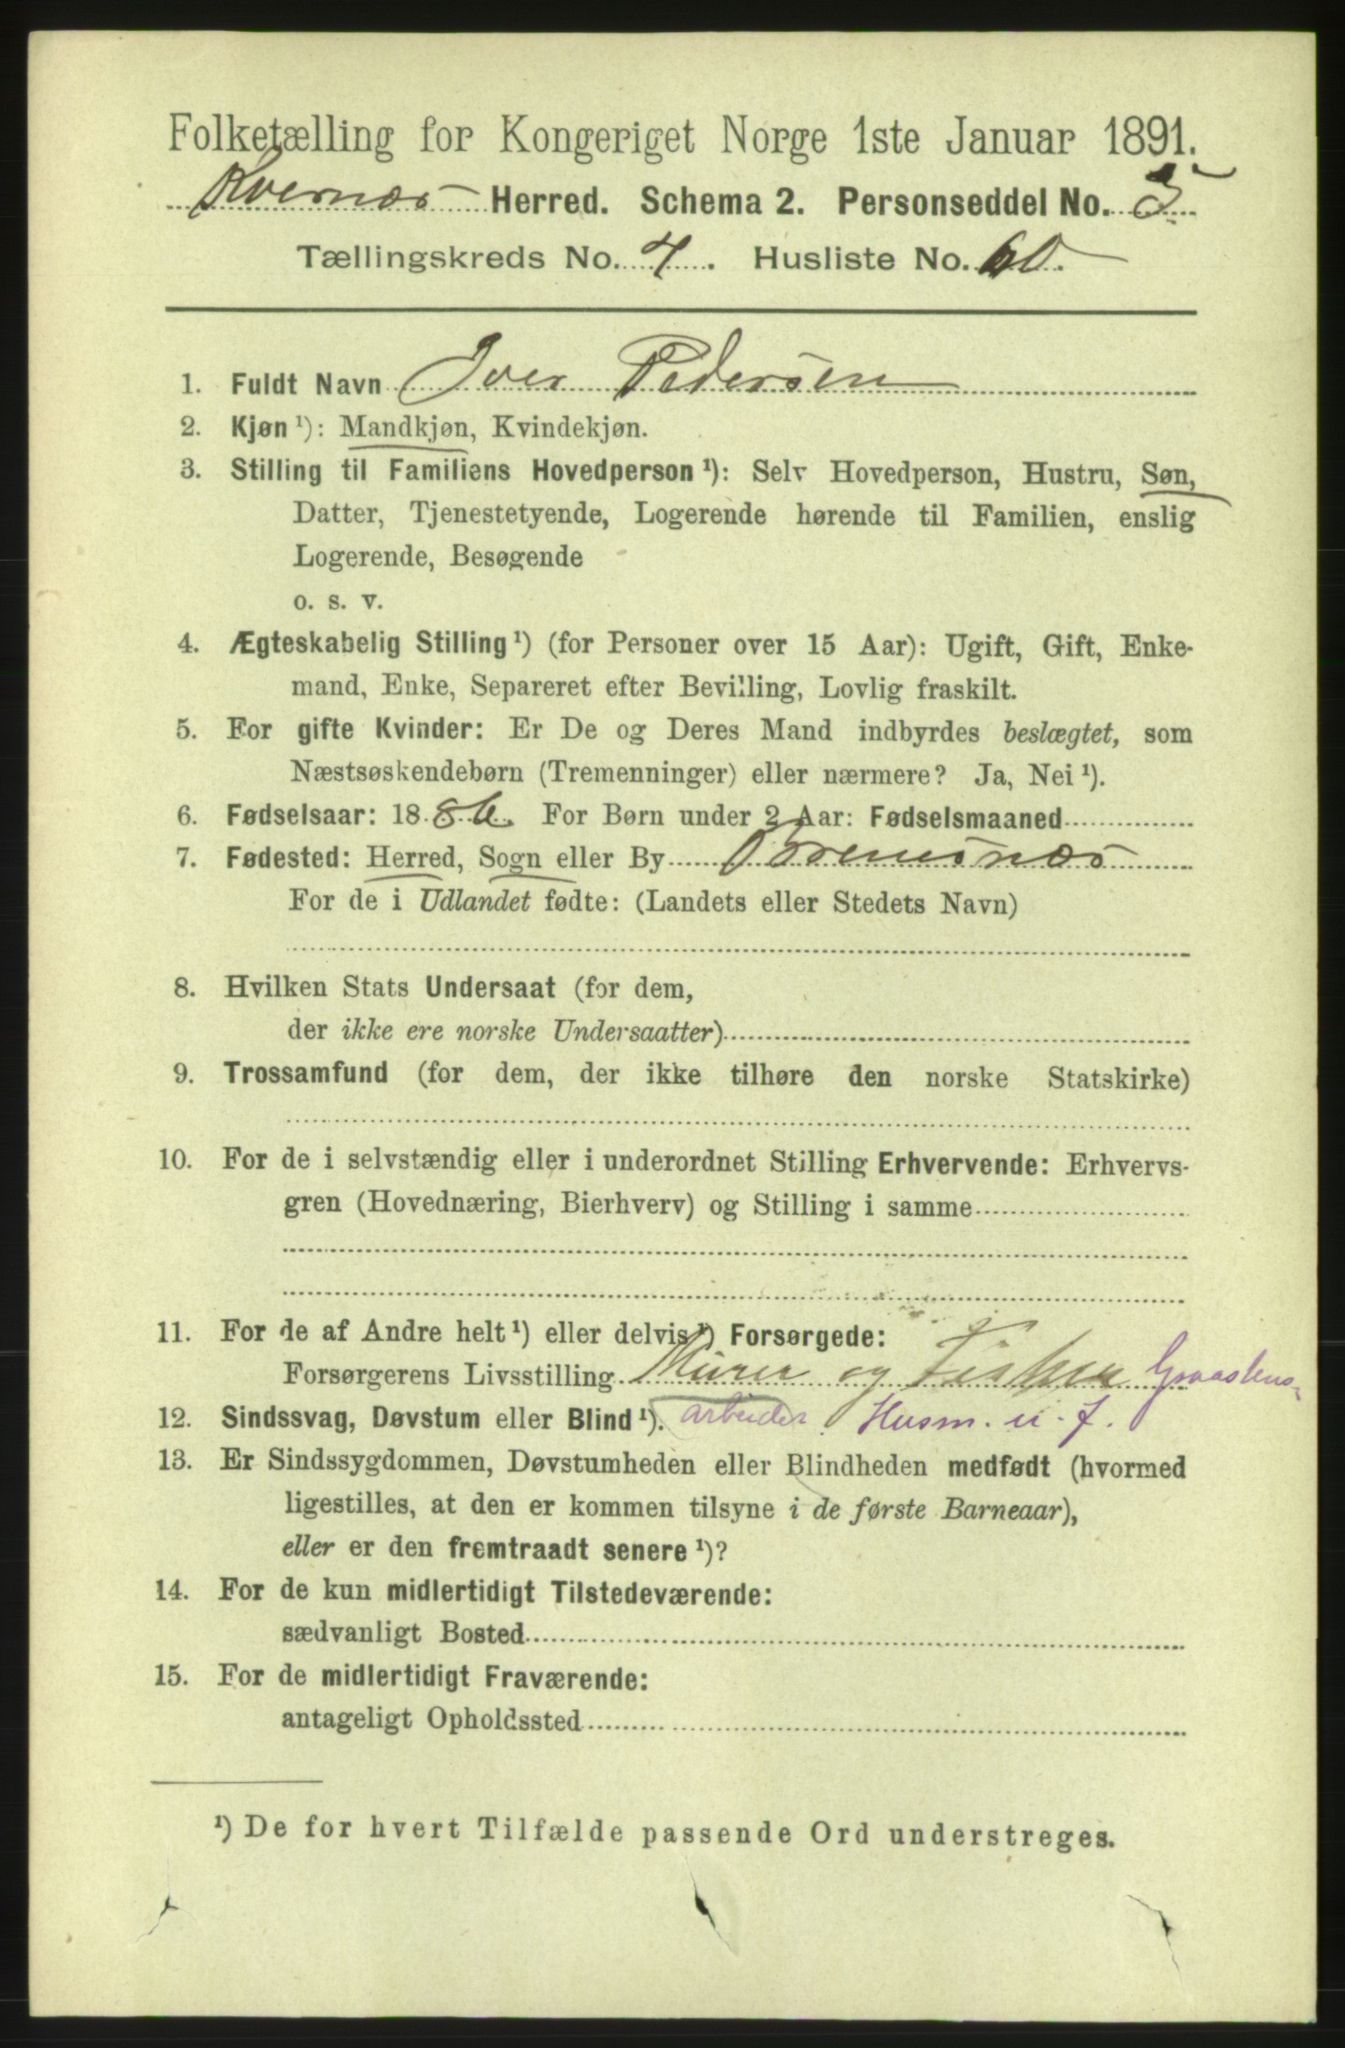 Folketælling for Kongeriget Norge 1ste Januar 1891.
Kvernæs Herred. Schema 2. Personseddel No. 5
Tællingskreds No. 4. Husliste No. 60.
1. Fuldt Navn Iver Pedersen
2. Kjøn ¹): Mandkjøn, Kvindekjøn.
3. Stilling til Familiens Hovedperson ¹): Selv Hovedperson, Hustru, Søn,
Datter, Tjenestetyende, Logerende hørende til Familien, enslig
Logerende, Besøgende
o. s. v.
4. Ægteskabelig Stilling ¹) (for Personer over 15 Aar): Ugift, Gift, Enke-
mand, Enke, Separeret efter Bevilling, Lovlig fraskilt.
5. For gifte Kvinder: Er De og Deres Mand indbyrdes beslægtet, som
Næstsøskendebørn (Tremenninger) eller nærmere? Ja, Nei ¹).
6. Fødselsaar: 1886. For Børn under 2 Aar: Fødselsmaaned
7. Fødested: Herred, Sogn eller By Bremsnæs
For de i Udlandet fødte: (Landets eller Stedets Navn)
8. Hvilken Stats Undersaat (for dem,
der ikke ere norske Undersaatter)
9. Trossamfund (for dem, der ikke tilhøre den norske Statskirke)
10. For de i selvstændig eller i underordnet Stilling Erhvervende: Erhvervs-
gren (Hovednæring, Bierhverv) og Stilling i samme
11. For de af Andre helt ¹) eller delvis ¹) Forsørgede:
Forsørgerens Livsstilling Murer og Fisker Graastens-
12. Sindssvag, Døvstum eller Blind ¹). arbeider. Husm. u. J.
13. Er Sindssygdommen, Døvstumheden eller Blindheden medfødt (hvormed
ligestilles, at den er kommen tilsyne i de første Barneaar),
eller er den fremtraadt senere ¹)?
14. For de kun midlertidigt Tilstedeværende:
sædvanligt Bosted
15. For de midlertidigt Fraværende:
antageligt Opholdssted
¹) De for hvert Tilfælde passende Ord understreges.